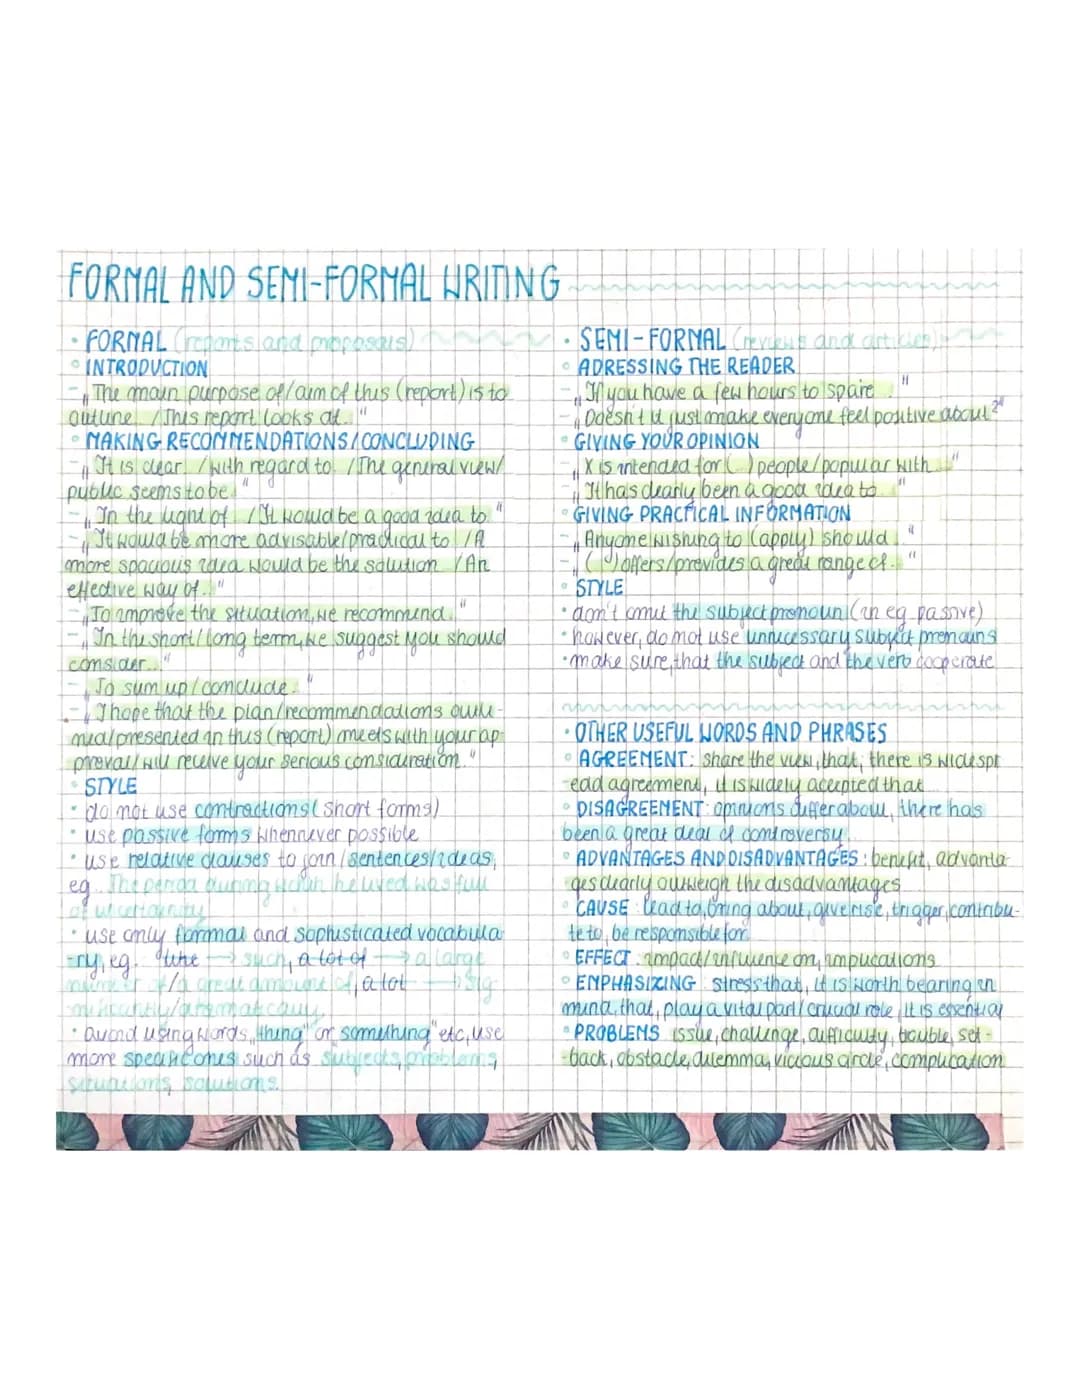 FORMAL AND SEMI-FORMAL WRITING
• FORMAL (reports and proposals)
◦ INTRODUCTION
- „The main purpose of/aim of this (report) is to
outline. /This report looks at..."
◦ MAKING RECOMMENDATIONS/CONCLUDING
- „It is clear. /With regard to. /The general view/
public seems to be."
- „In the light of. /It would be a good idea to."
- „It would be more advisable/practical to. /A
more spacious idea would be the solution. /An
effective way of.."
- „To improve the situation, we recommend."
- „In the short/long term, we suggest you should
consider..."
- „To sum up/conclude."
- „I hope that the plan/recommendations outli-
ned/presented in this (report) meets with your ap
proval/will receive your serious consideration."
◦ STYLE
• do not use contractions (short forms)
• use passive forms whennever possible
• use relative clauses to join/sentences/ideas,
eg. The period during which he lived was full
of uncertainty
• use only formal and sophisticated vocabula
-ry, eg. like → such, a lot of → a large
number of/a great amount of, a lot → sig
nificantly/dramatically
• avoid using words „thing" or „something" etc, use
more specific ones such as subjects, problems,
situations, solutions.
• SEMI-FORMAL (reviews and articles)
◦ ADRESSING THE READER
- „If you have a few hours to spare..."
- „Doesn't it just make everyone feel positive about?"
◦ GIVING YOUR OPINION
- „X is intended for (...) people/popular with..."
- „It has clearly been a good idea to..."
◦ GIVING PRACTICAL INFORMATION
- „Anyone wishing to (apply) should."
- „(...) offers/provides a great range of..."
◦ STYLE
• don't omit the subject pronoun (in eg. passive)
• however, do not use unnecessary subject pronouns
• make sure, that the subject and the verb cooperate
• OTHER USEFUL WORDS AND PHRASES
◦ AGREEMENT: share the view, that, there is widespr
-ead agreement, it is widely accepted that...
◦ DISAGREEMENT: opinions differ about, there has
been a great deal of controversy...
◦ ADVANTAGES AND DISADVANTAGES: benefit, advanta
ges clearly outweigh the disadvantages
◦ CAUSE: lead to, bring about, give rise, trigger, contribu-
te to, be responsible for
◦ EFFECT: impact/influence on, implications
◦ EMPHASIZING: stress that, it is worth bearing in
mind, that, play a vital part/crucial role, it is essential
◦ PROBLEMS: issue, challenge, difficulty, trouble, set-
-back, obstacle, dilemma, vicious circle, complication